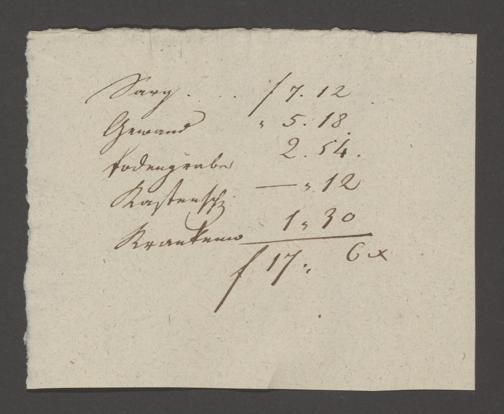 Sarg . . . f 7. 12
Gewand " 5. 18.
Todengraber 2. 54.
Kastensch — " 12
Kranken 1 " 30
f 17 " 6 x